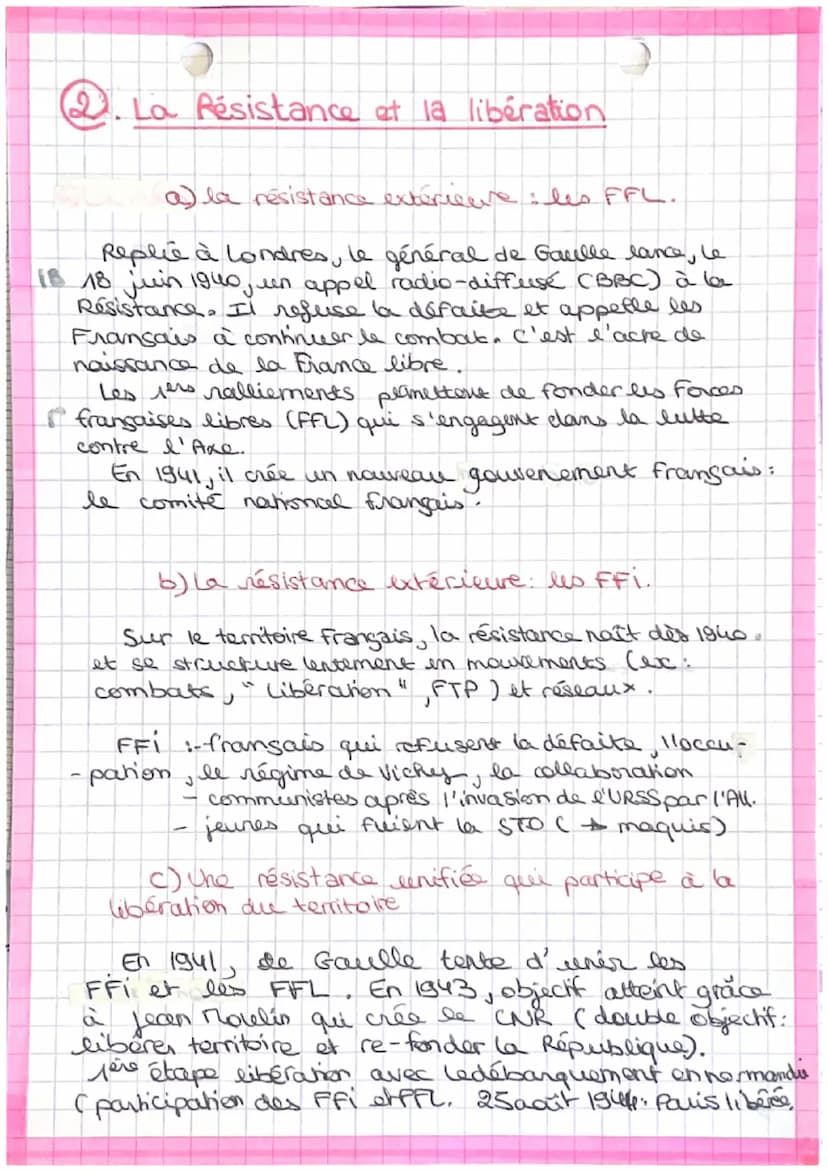 2. La Résistance et la libération
a) la résistance extérieure : les FFL.
Replié à Londres, le général de Gaulle lance, le
18 18 juin 1940, un appel radio-diffusé (BBC) à la
Résistance. Il refuse la défaite et appelle les
Français à continuer le combat. C'est l'acre de
naissance de la France libre.
Les 1ers ralliements permettent de fonder les Forces
françaises libres (FFL) qui s'engagent dans la lutte
contre l'Axe.
En 1941, il crée un nouveau gouvernement français :
le comité national français.
b) La résistance extérieure : les FFi.
Sur le territoire français, la résistance naît dès 1940.
et se structure lentement en mouvements (ex :
combats, "Libération", FTP) et réseaux.
FFi :- français qui refusent la défaite, l'occu-
-pation, le régime de Vichy, la collaboration
- communistes après l'invasion de l'URSS par l'All.
- jeunes qui fuient la STO (→ maquis)
c) Une résistance unifiée qui participe à la
libération du territoire
En 1941, de Gaulle tente d'unir les
FFi et les FFL. En 1943, objectif atteint grâce
à Jean Moulin qui crée le CNR (double objectif :
libérer territoire et re-fonder la République).
1ère étape libération avec le débarquement en normandie
(participation des FFi et FFL. 25 août 1944 : Paris libérée.